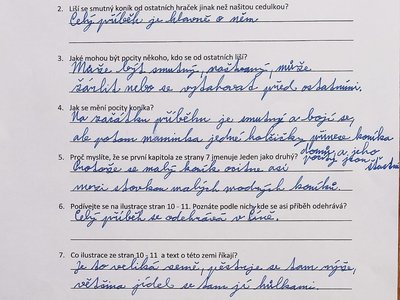 2. Liší se smutný koník od ostatních hraček jinak než našitou cedulkou?
Celý příběh je hlavně o něm
3. Jaké mohou být pocity někoho, kdo se od ostatních liší?
Může být smutný, naštvaný, může
žárlit nebo se vytahovat před ostatními.
4. Jak se mění pocity koníka?
Na začátku příběhu je smutný a bojí se,
ale potom maminka jedné holčičky přinese koníka
domů a jeho
pocity jsou šťastné
5. Proč myslíte, že se první kapitola ze strany 7 jmenuje Jeden jako druhý?
Protože se malý koník ocitne asi
mezi stovkou malých modrých koníků.
6. Podívejte se na ilustrace stran 10 - 11. Poznáte podle nich, kde se asi příběh odehrává?
Celý příběh se odehrává v Číně.
7. Co ilustrace ze stran 10 - 11 a text o této zemi říkají?
Je to veliká země, pěstuje se tam rýže,
většina jídel se tam jí hůlkami.